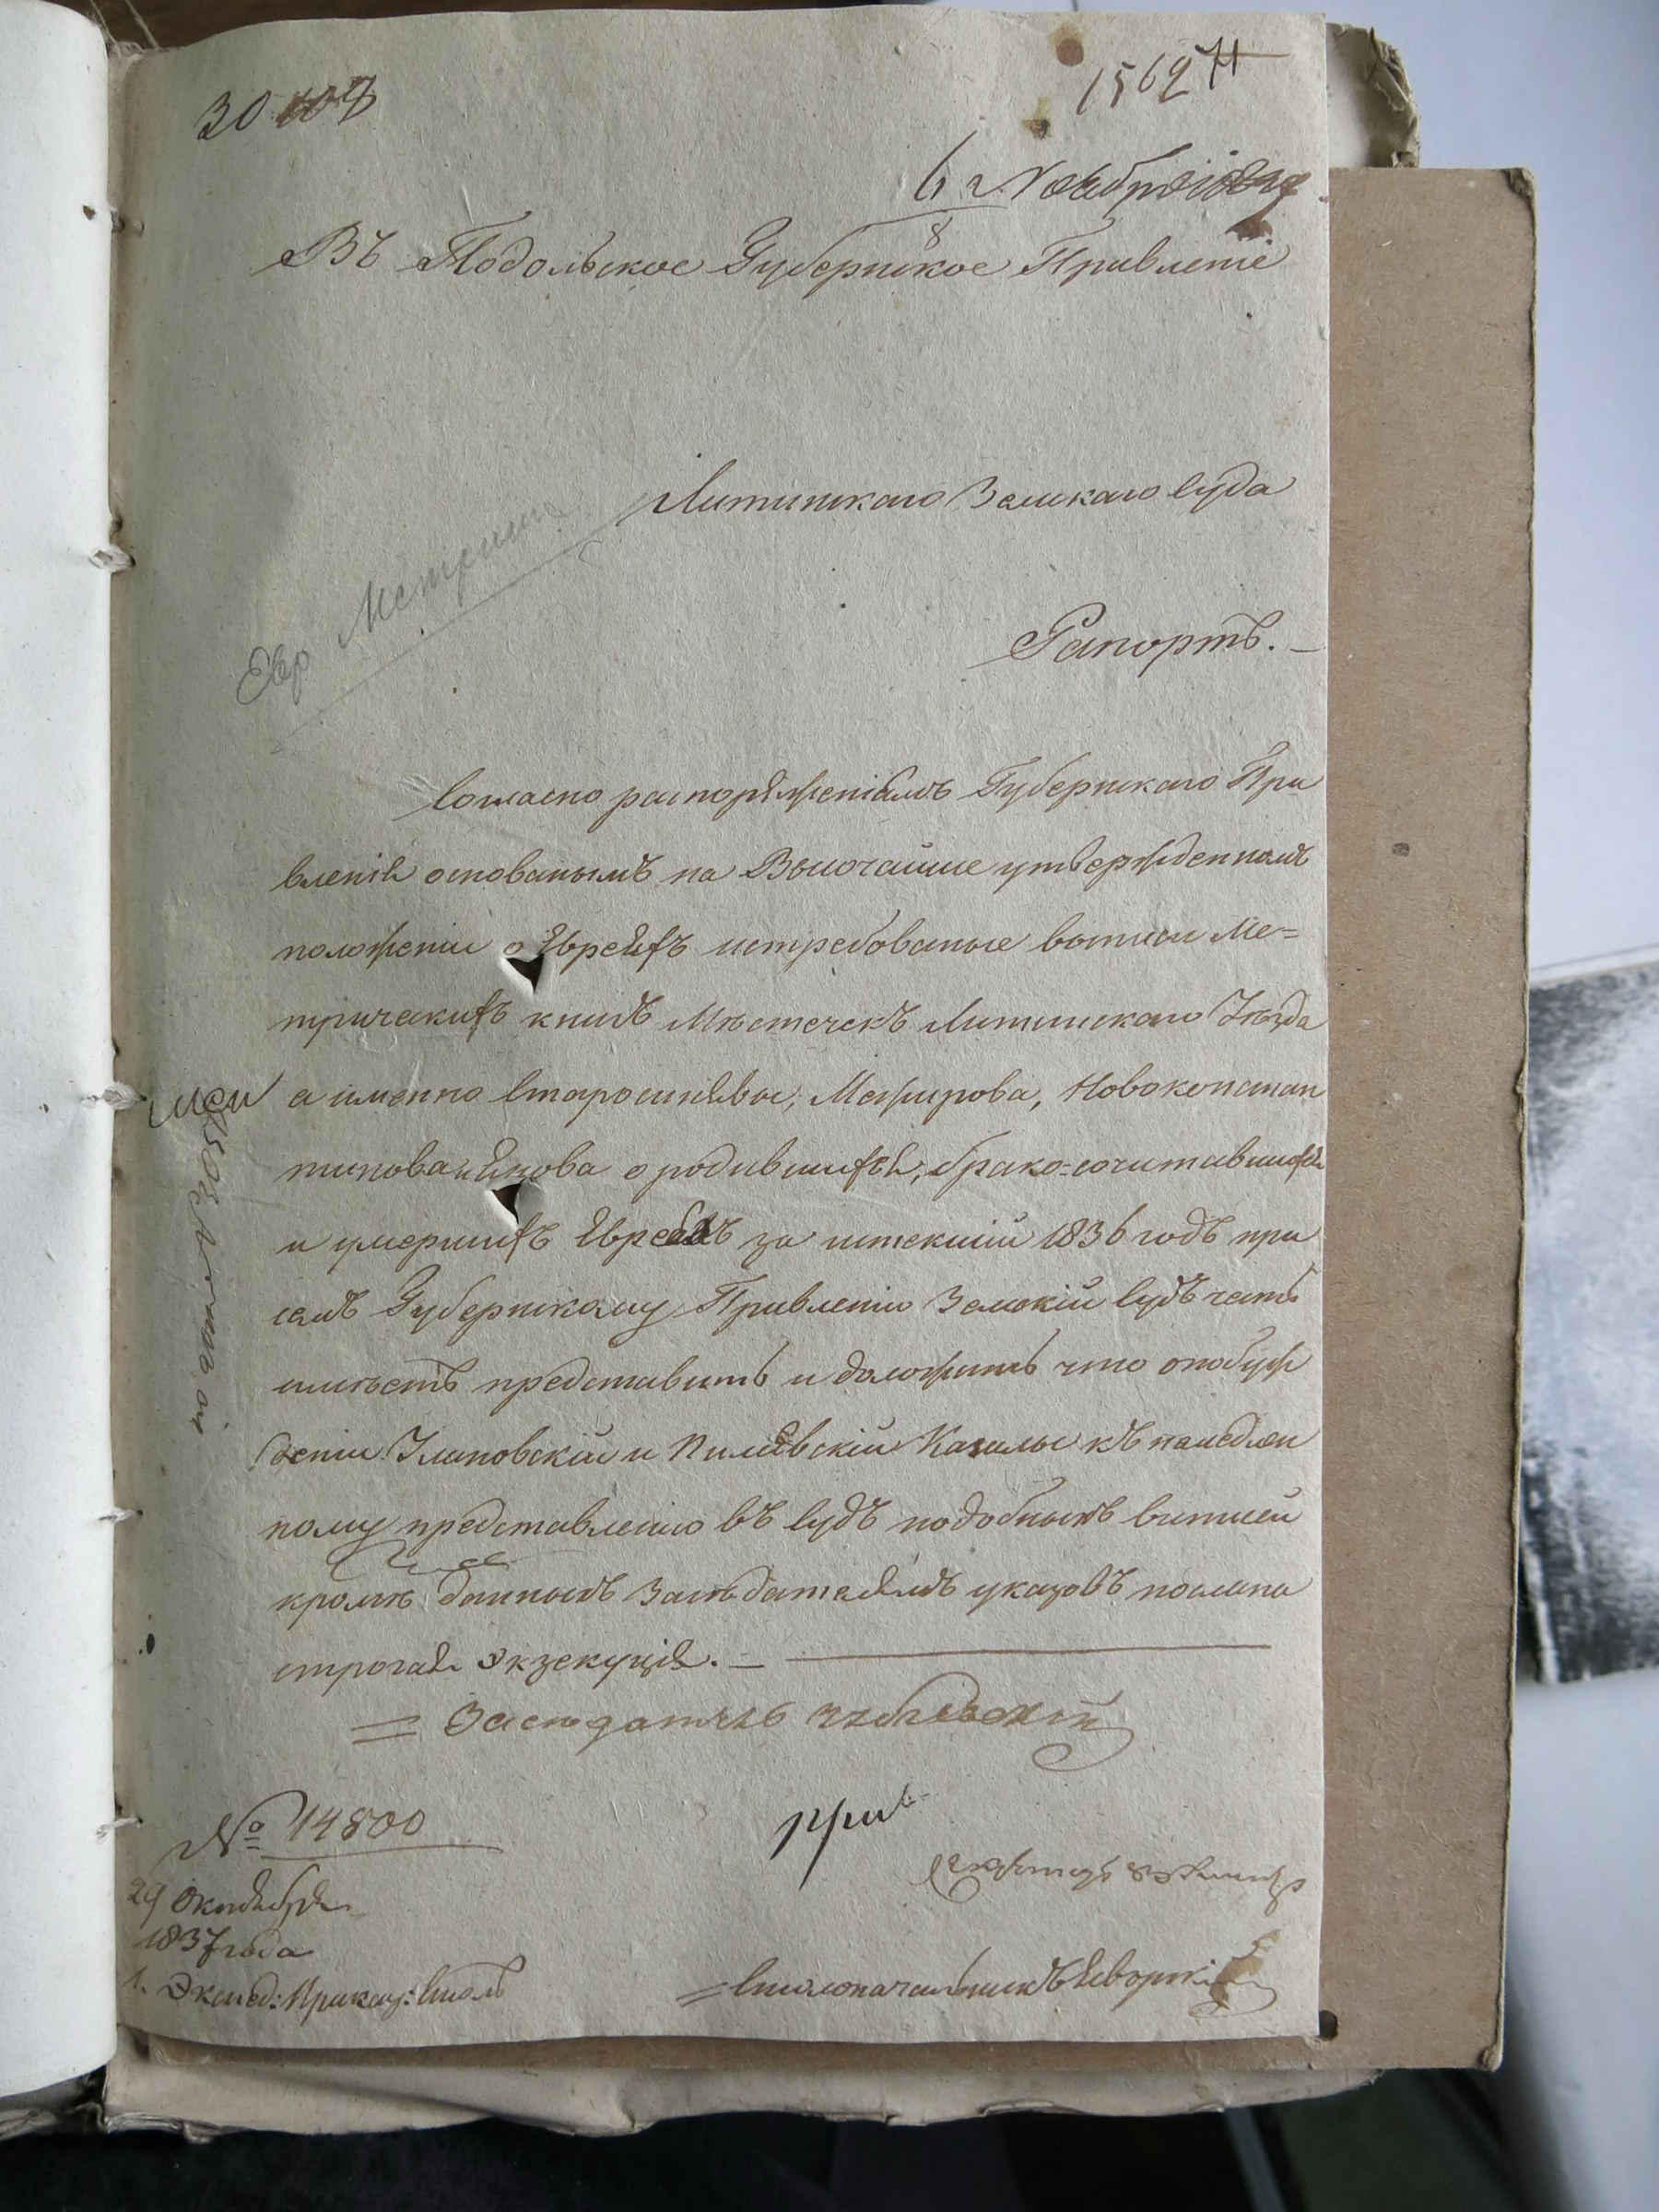 30
1569
6 Ноября
Въ Подольское Губернское Правленіе
Литинскаго Земскаго Суда
Евр Метрики
Рапортъ. —
Согласно распоряженіямъ Губернскаго Пра
вленія основанымъ на Высочайше утвержденномъ
положеніи о Евреяхъ истребованые выписи Ме=
трическихъ книгъ Мѣстечекъ Литинскаго Уѣзда
а именно Старосинявы, Межирова, Новоконстан
тинова и Янова о родившихся, брако=сочитавшихся
и умершихъ Евреяхъ за истекшій 1836 годъ при
семъ Губернскому Правленію Земскій Судъ честь
имѣетъ представить и доложить что о побуж
деніи Улановскій и Пилявскій Кагалы къ намедлен
ному представленію въ Судъ подобныхъ выписей
кромѣ данныхъ Засѣдателямъ указовъ послана
строгая Экзекуція. —
Засѣдатель
№ 14800
29 Октября
1837 года
1. Экспед: Приказ: Столъ
Столоначальникъ Яворскій